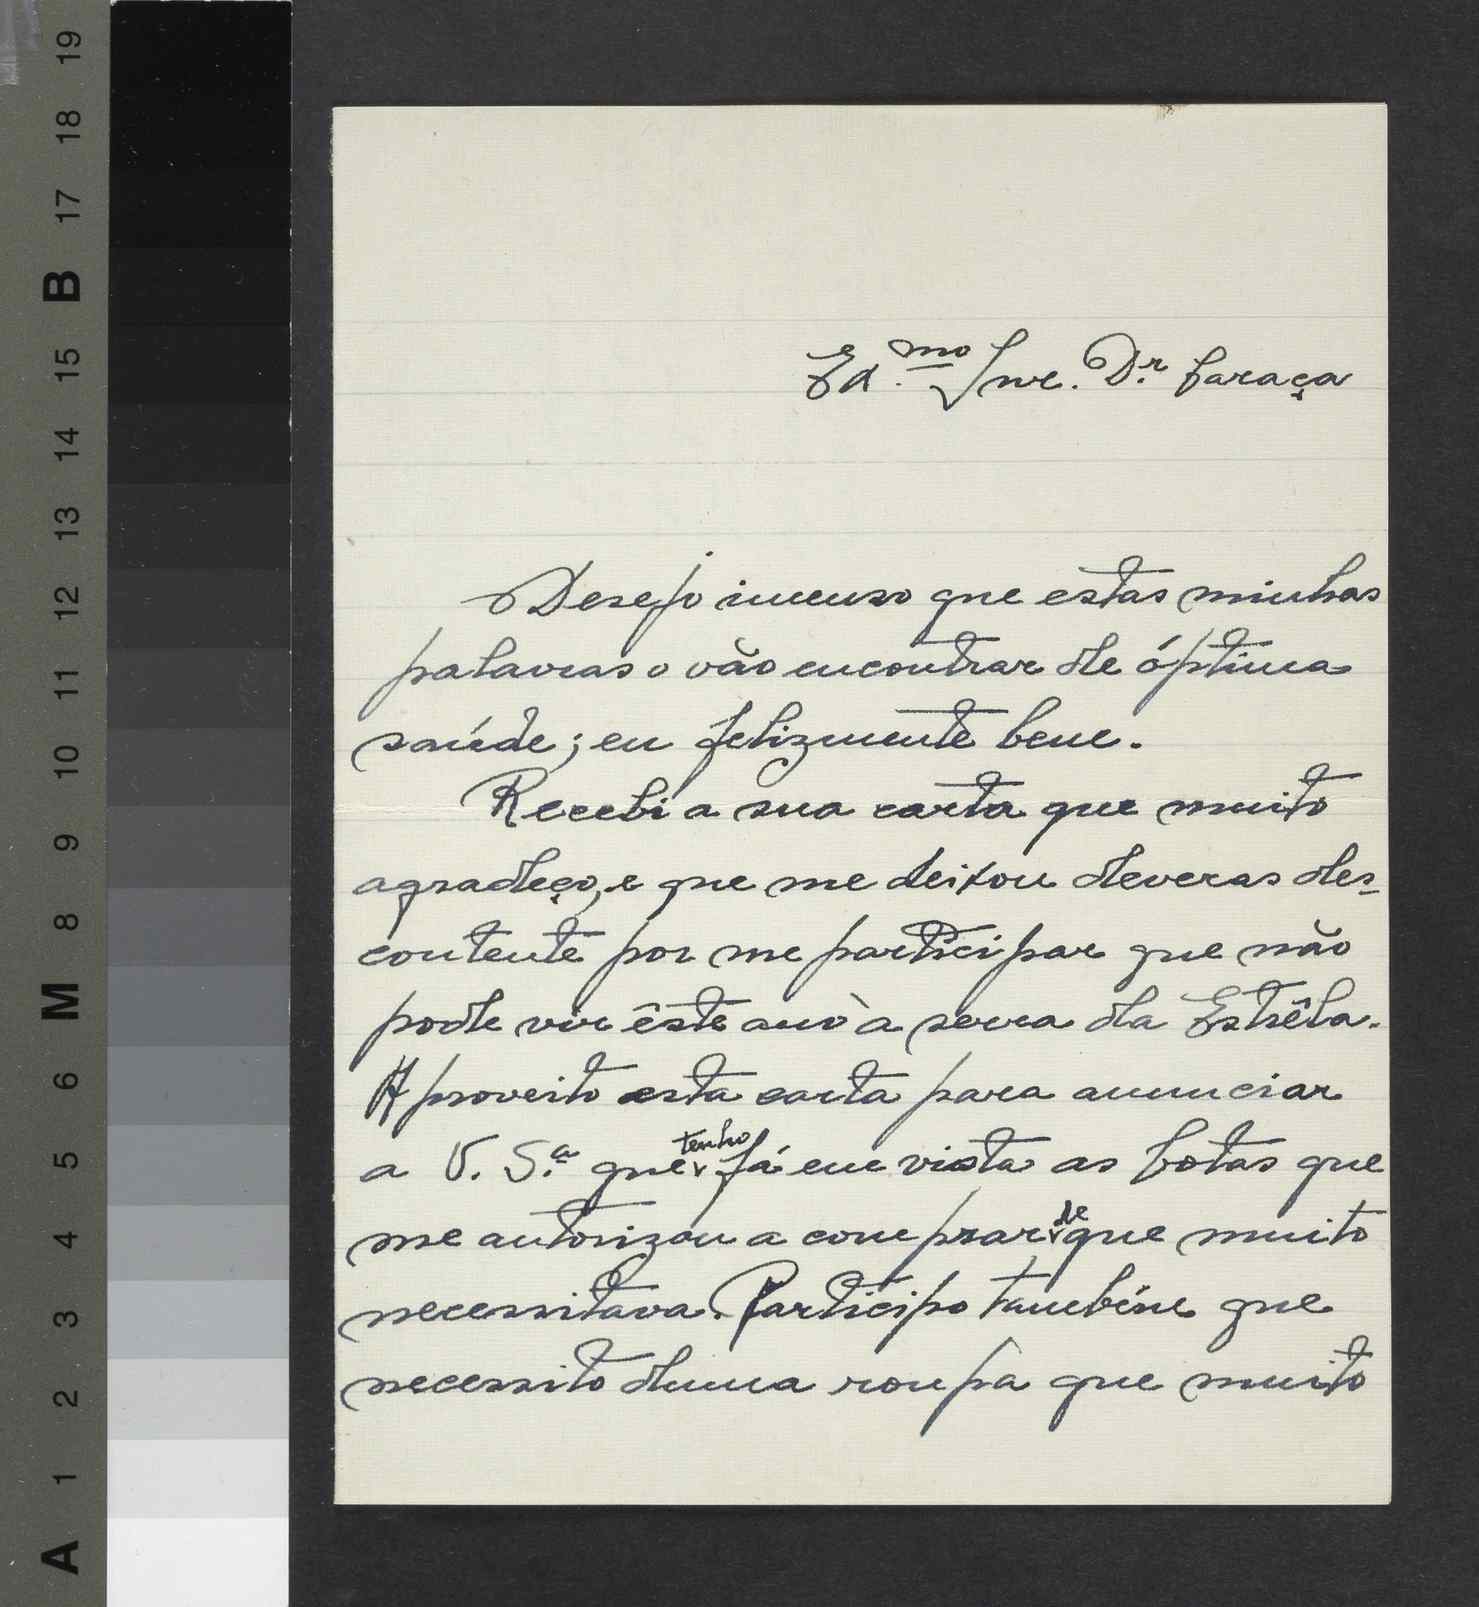 19
18
17
B
15
14
13
12
11
10
9
8
M
6
5
4
3
2
1
A
Ex.mo Snr. D.r Caraça
Desejo imenso que estas minhas
palavras o vão encontrar de óptima
saúde; eu felizmente bem.
Recebi a sua carta que muito
agradeço, e que me deixou deveras des-
contente por me participar que não
pode vir êste ano à serra da Estrêla.
Aproveito esta carta para anunciar
a V. S.a que tenho já em vista as botas que
me autorizou a comprar de que muito
necessitava. Participo também que
necessito duma roupa que muito